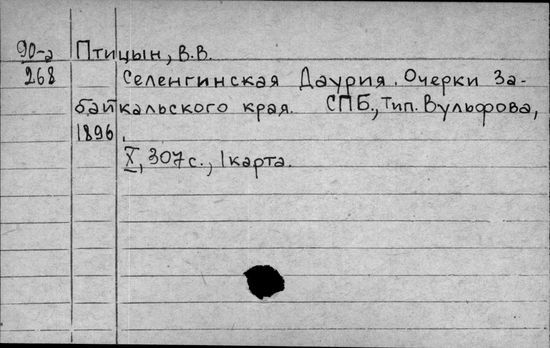 90-2 Птицын, В.В.
268 Селенгинская Даурия. Очерки За-
байкальского края. СПБ., Тип. Вульфова,
1896.
X, 307с., 1карта.